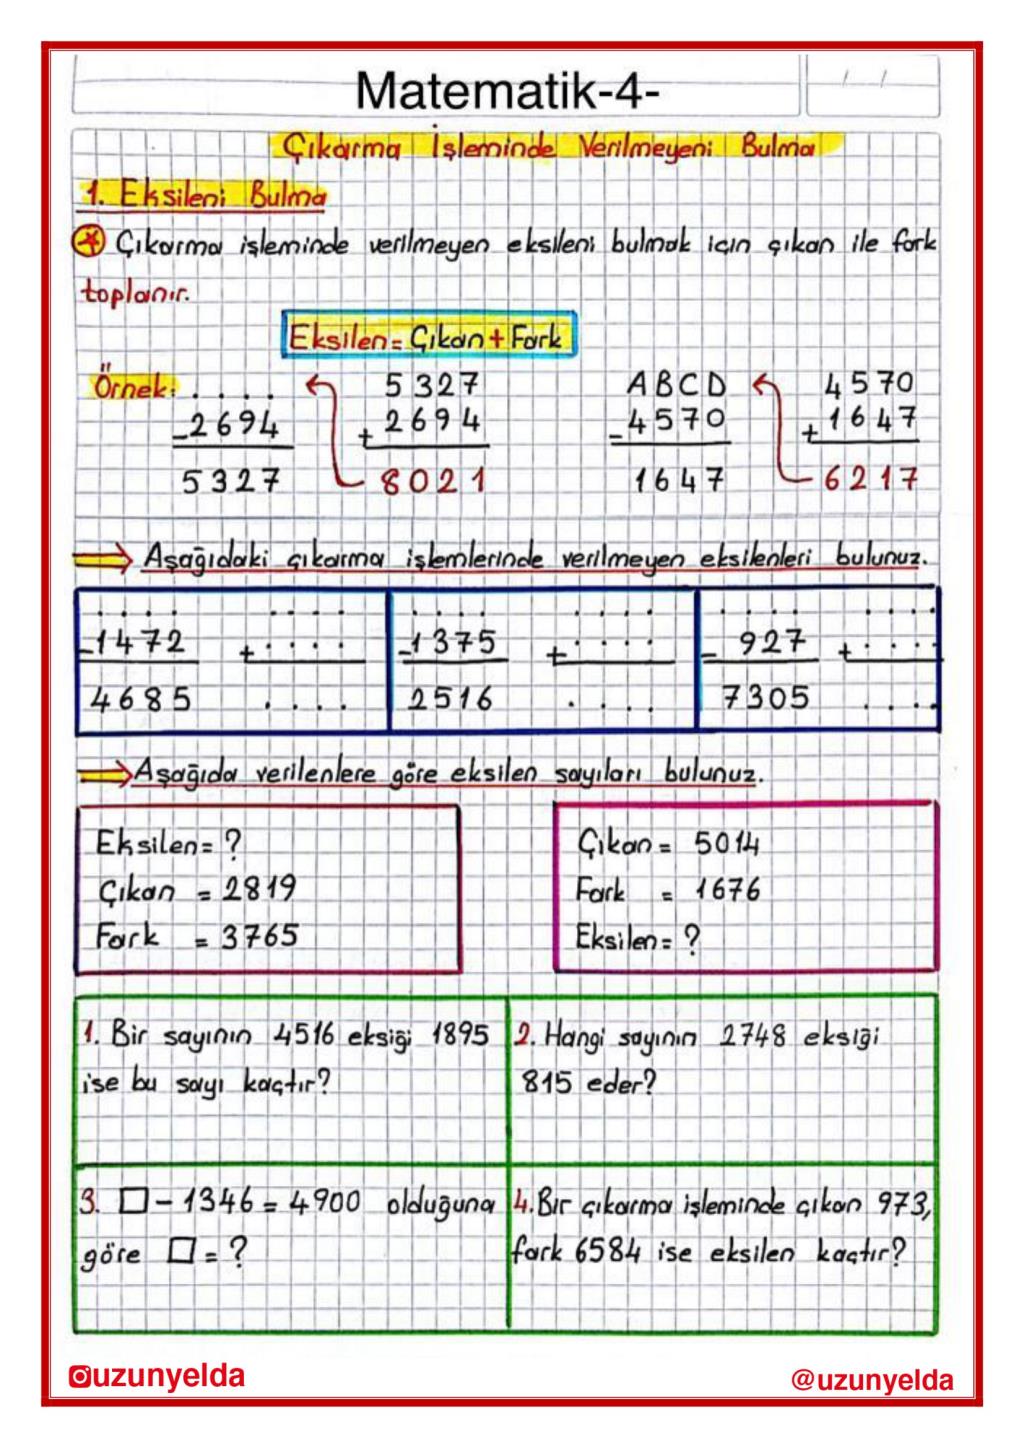 Matematik-4-
/ /
Çıkarma İşleminde Verilmeyeni Bulma
1. Eksileni Bulma
Çıkarma işleminde verilmeyen eksileni bulmak için çıkan ile fark
toplanır.
Eksilen = Çıkan + Fark
Örnek: . . . . 5327 ABCD 4570
-2694 + 2694 -4570 + 1647
5327 8021 1647 6217
Aşağıdaki çıkarma işlemlerinde verilmeyen eksilenleri bulunuz.
. . . . . . . . . . . . . . . . . . . . . . . .
-1472 + . . . . -1375 + . . . . - 927 + . . . .
4685 . . . . 2516 . . . . 7305 . . . .
Aşağıda verilenlere göre eksilen sayıları bulunuz.
Eksilen = ?
Çıkan = 2819
Fark = 3765
Çıkan = 5014
Fark = 1676
Eksilen = ?
1. Bir sayının 4516 eksiği 1895
ise bu sayı kaçtır?
2. Hangi sayının 2748 eksiği
815 eder?
3. □ - 1346 = 4900 olduğuna
göre □ = ?
4. Bir çıkarma işleminde çıkan 973,
fark 6584 ise eksilen kaçtır?
uzunyelda
@uzunyelda